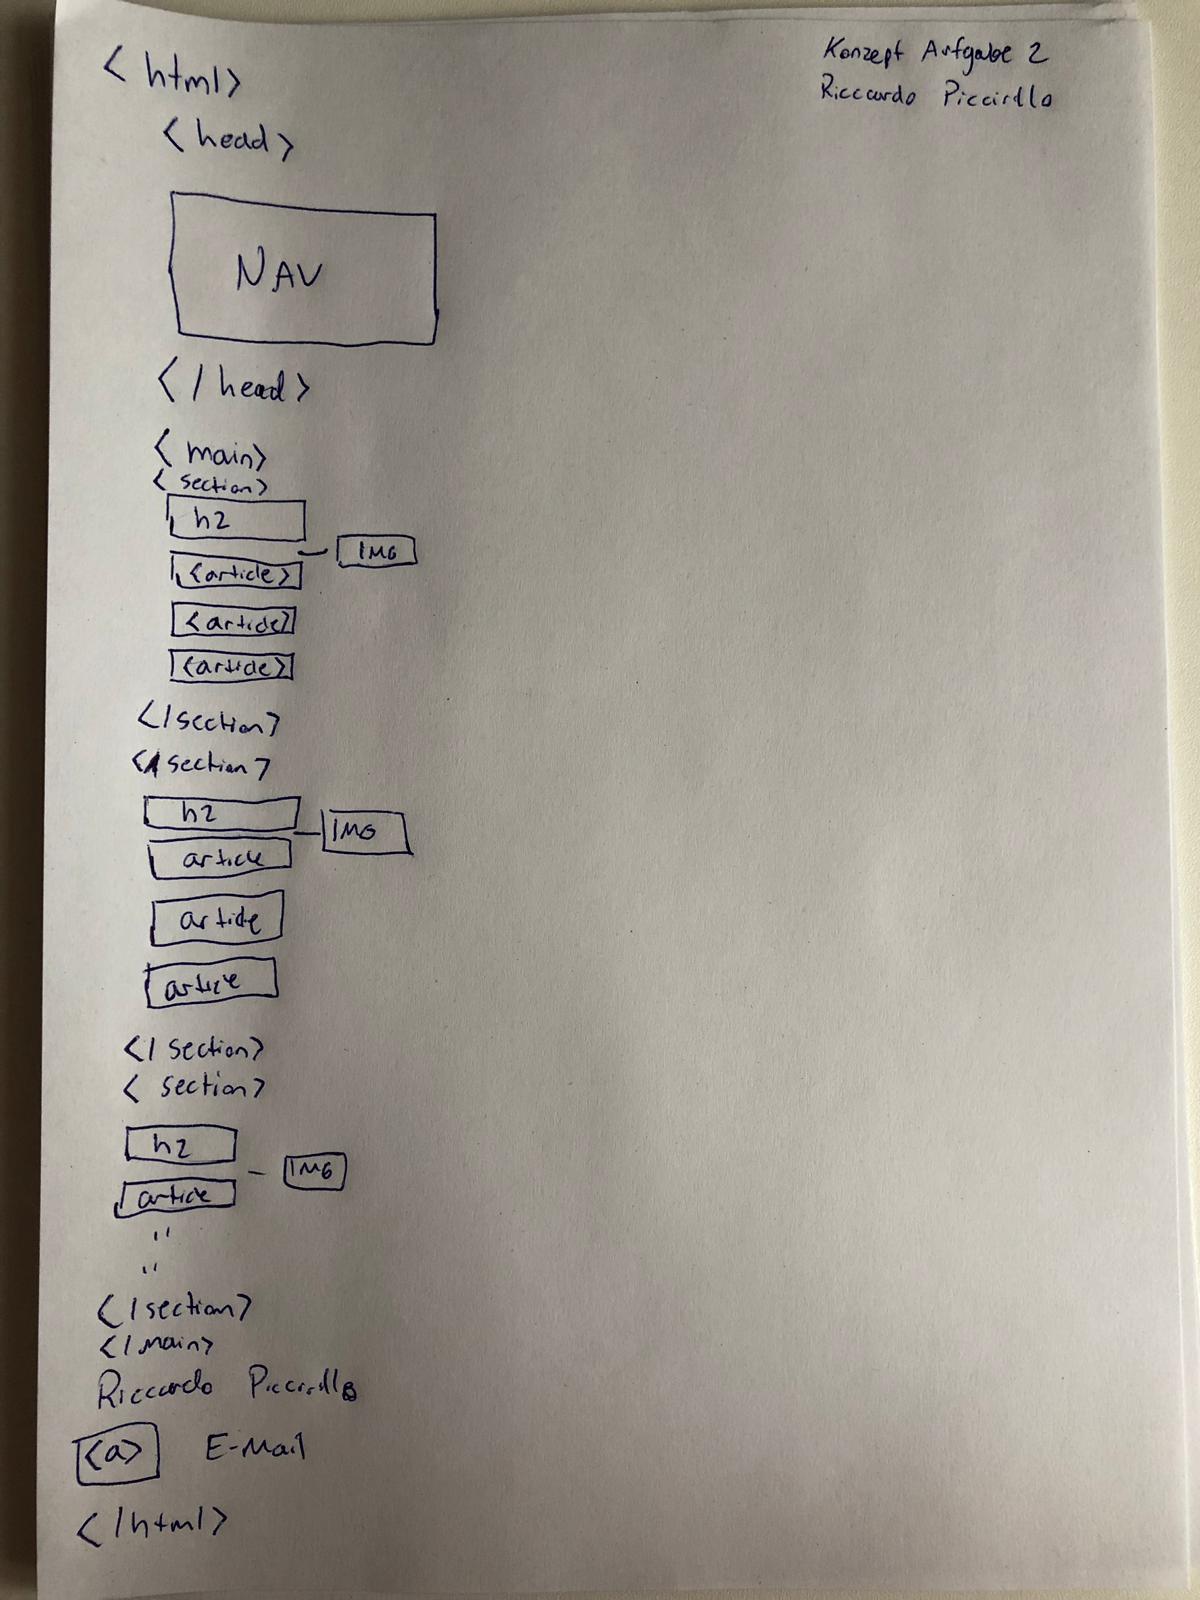 Konzept Aufgabe 2
Riccardo Piccirillo
<html>
<head>
NAV
</head>
<main>
<section>
h2
IMG
<article>
<article>
<article>
</section>
<section>
h2
IMG
article
article
article
</section>
<section>
h2
IMG
article
"
"
</section>
</main>
Riccardo Piccirillo
<a> E-Mail
</html>